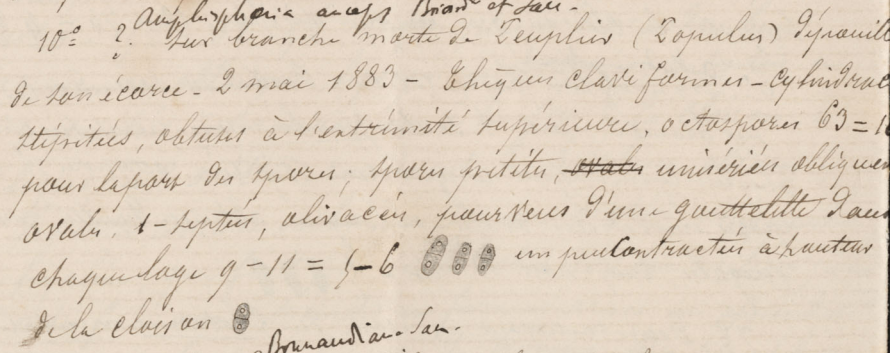 Amphisphaeria anceps Briard et Sacc.
10º ? Sur branche morte de Peuplier (Populus) dépouill
de son écorce - 2 mai 1883 - Thèques claviformes - cylindrac
stipitées, obtuses à l'extrémité supérieure, octospores 63 = 1
pour la part. des spores; spores petites, ovales unisériées obliquem
ovales, 1-septées, olivacées, pourvues d'une gouttelette dans
chaque loge 9-11 = 5-6 un peu contractées à hauteur
de la cloison